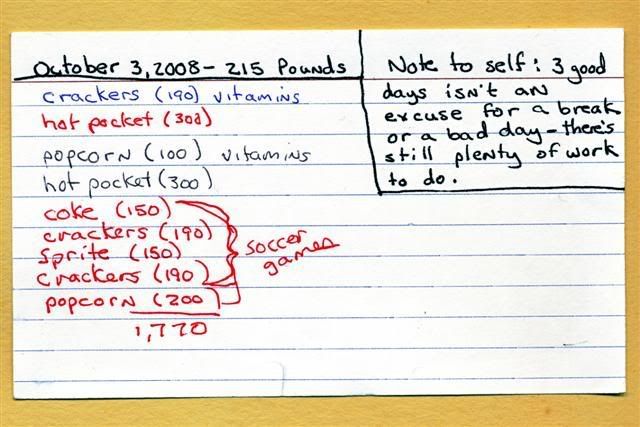 October 3, 2008 - 215 Pounds
crackers (190) vitamins
hot pocket (300)
popcorn (100) vitamins
hot pocket (300)
coke (150)
crackers (190)
sprite (150)
crackers (190)
popcorn (200)
1,770
soccer
games
Note to self: 3 good
days isn't an
excuse for a break
or a bad day - there's
still plenty of work
to do.